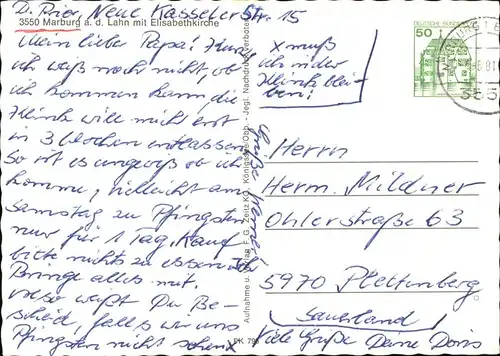 D. Prior, Neue Kasseler Str. 15
3550 Marburg a. d. Lahn mit Elisabethkirche
Mein lieber Papa!
ich weiß noch nicht, ob
ich kommen kann, die
Klinik will mich erst
in 3 Wochen entlassen
So ist es ungewiß ob ich
komme, vielleicht am
Samstag zu Pfingsten
nur für 1 Tag. Kauf
bitte nichts zu essen
Bringe alles mit.
weißt Du Be-
scheid, falls wir uns
Pfingsten nicht sehen x
x muß
ich in der
Klinik blei-
ben!
Aufnahme u. Verlag F. G. Zeitz KG, Königssee/Obb. - Jegl. Nachdruck verboten
PK 795
DEUTSCHE BUNDESPOST
50
355
Herrn
Herm. Mildner
Ohlerstraße 63
5970 Plettenberg
Sauerland
Viele Grüße Deine Doris